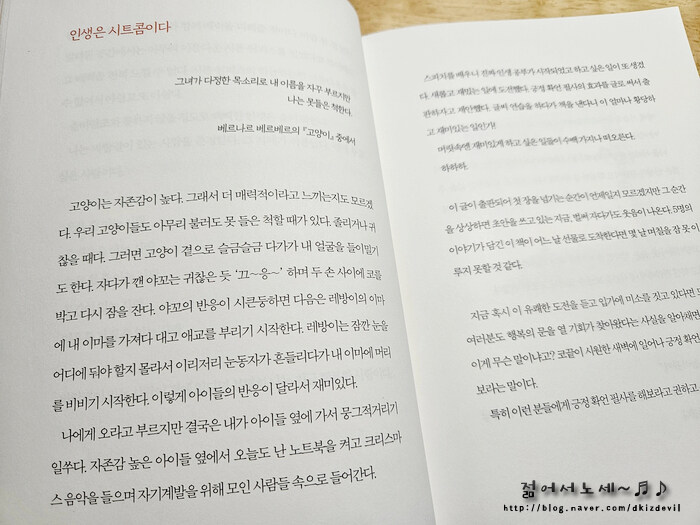 인생은 시트콤이다
그녀가 다정한 목소리로 내 이름을 자꾸 부르지만
나는 못들은 척한다.
베르나르 베르베르의 『고양이』 중에서
고양이는 자존감이 높다. 그래서 더 매력적이라고 느끼는지도 모르겠
다. 우리 고양이들도 아무리 불러도 못 들은 척할 때가 있다. 졸리거나 귀
찮을 때다. 그러면 고양이 곁으로 슬금슬금 다가가 내 얼굴을 들이밀기
도 한다. 자다가 깬 야꼬는 귀찮은 듯 ‘끄~응~’ 하며 두 손 사이에 코를
박고 다시 잠을 잔다. 야꼬의 반응이 시큰둥하면 다음은 레방이의 이마
에 내 이마를 가져다 대고 애교를 부리기 시작한다. 레방이는 잠깐 눈을
어디에 둬야 할지 몰라서 이리저리 눈동자가 흔들리다가 내 이마에 머리
를 비비기 시작한다. 이렇게 아이들의 반응이 달라서 재미있다.
나에게 오라고 부르지만 결국은 내가 아이들 옆에 가서 뭉그적거리기
일쑤다. 자존감 높은 아이들 옆에서 오늘도 난 노트북을 켜고 크리스마
스 음악을 들으며 자기계발을 위해 모인 사람들 속으로 들어간다.
스피치를 배우니 진짜 인생 공부가 시작되었고 하고 싶은 일이 또 생겼
다. 새롭고 재밌는 일에 도전했다. 긍정 확언 필사의 효과를 글로 써서 출
판하자고 제안했다. 글씨 연습을 하다가 책을 낸다니 이 얼마나 황당하
고 재미있는 일인가!
머릿속엔 재미있게 하고 싶은 일들이 수백 가지나 떠오른다.
하하하.
이 글이 출판되어 첫 장을 넘기는 순간이 언제일지 모르겠지만 그 순간
을 상상하면 초안을 쓰고 있는 지금, 벌써 자다가도 웃음이 나온다. 5명의
이야기가 담긴 이 책이 어느 날 선물로 도착한다면 몇 날 며칠을 잠 못 이
루지 못할 것 같다.
지금 혹시 이 유쾌한 도전을 듣고 입가에 미소를 짓고 있다면
여러분도 행복의 문을 열 기회가 찾아왔다는 사실을 알아채면
이게 무슨 말이냐고? 코끝이 시원한 새벽에 일어나 긍정 확언
보라는 말이다.
특히 이런 분들에게 긍정 확언 필사를 해보라고 권하고
젊어서노세~♬♪
http://blog.naver.com/dkizdevil